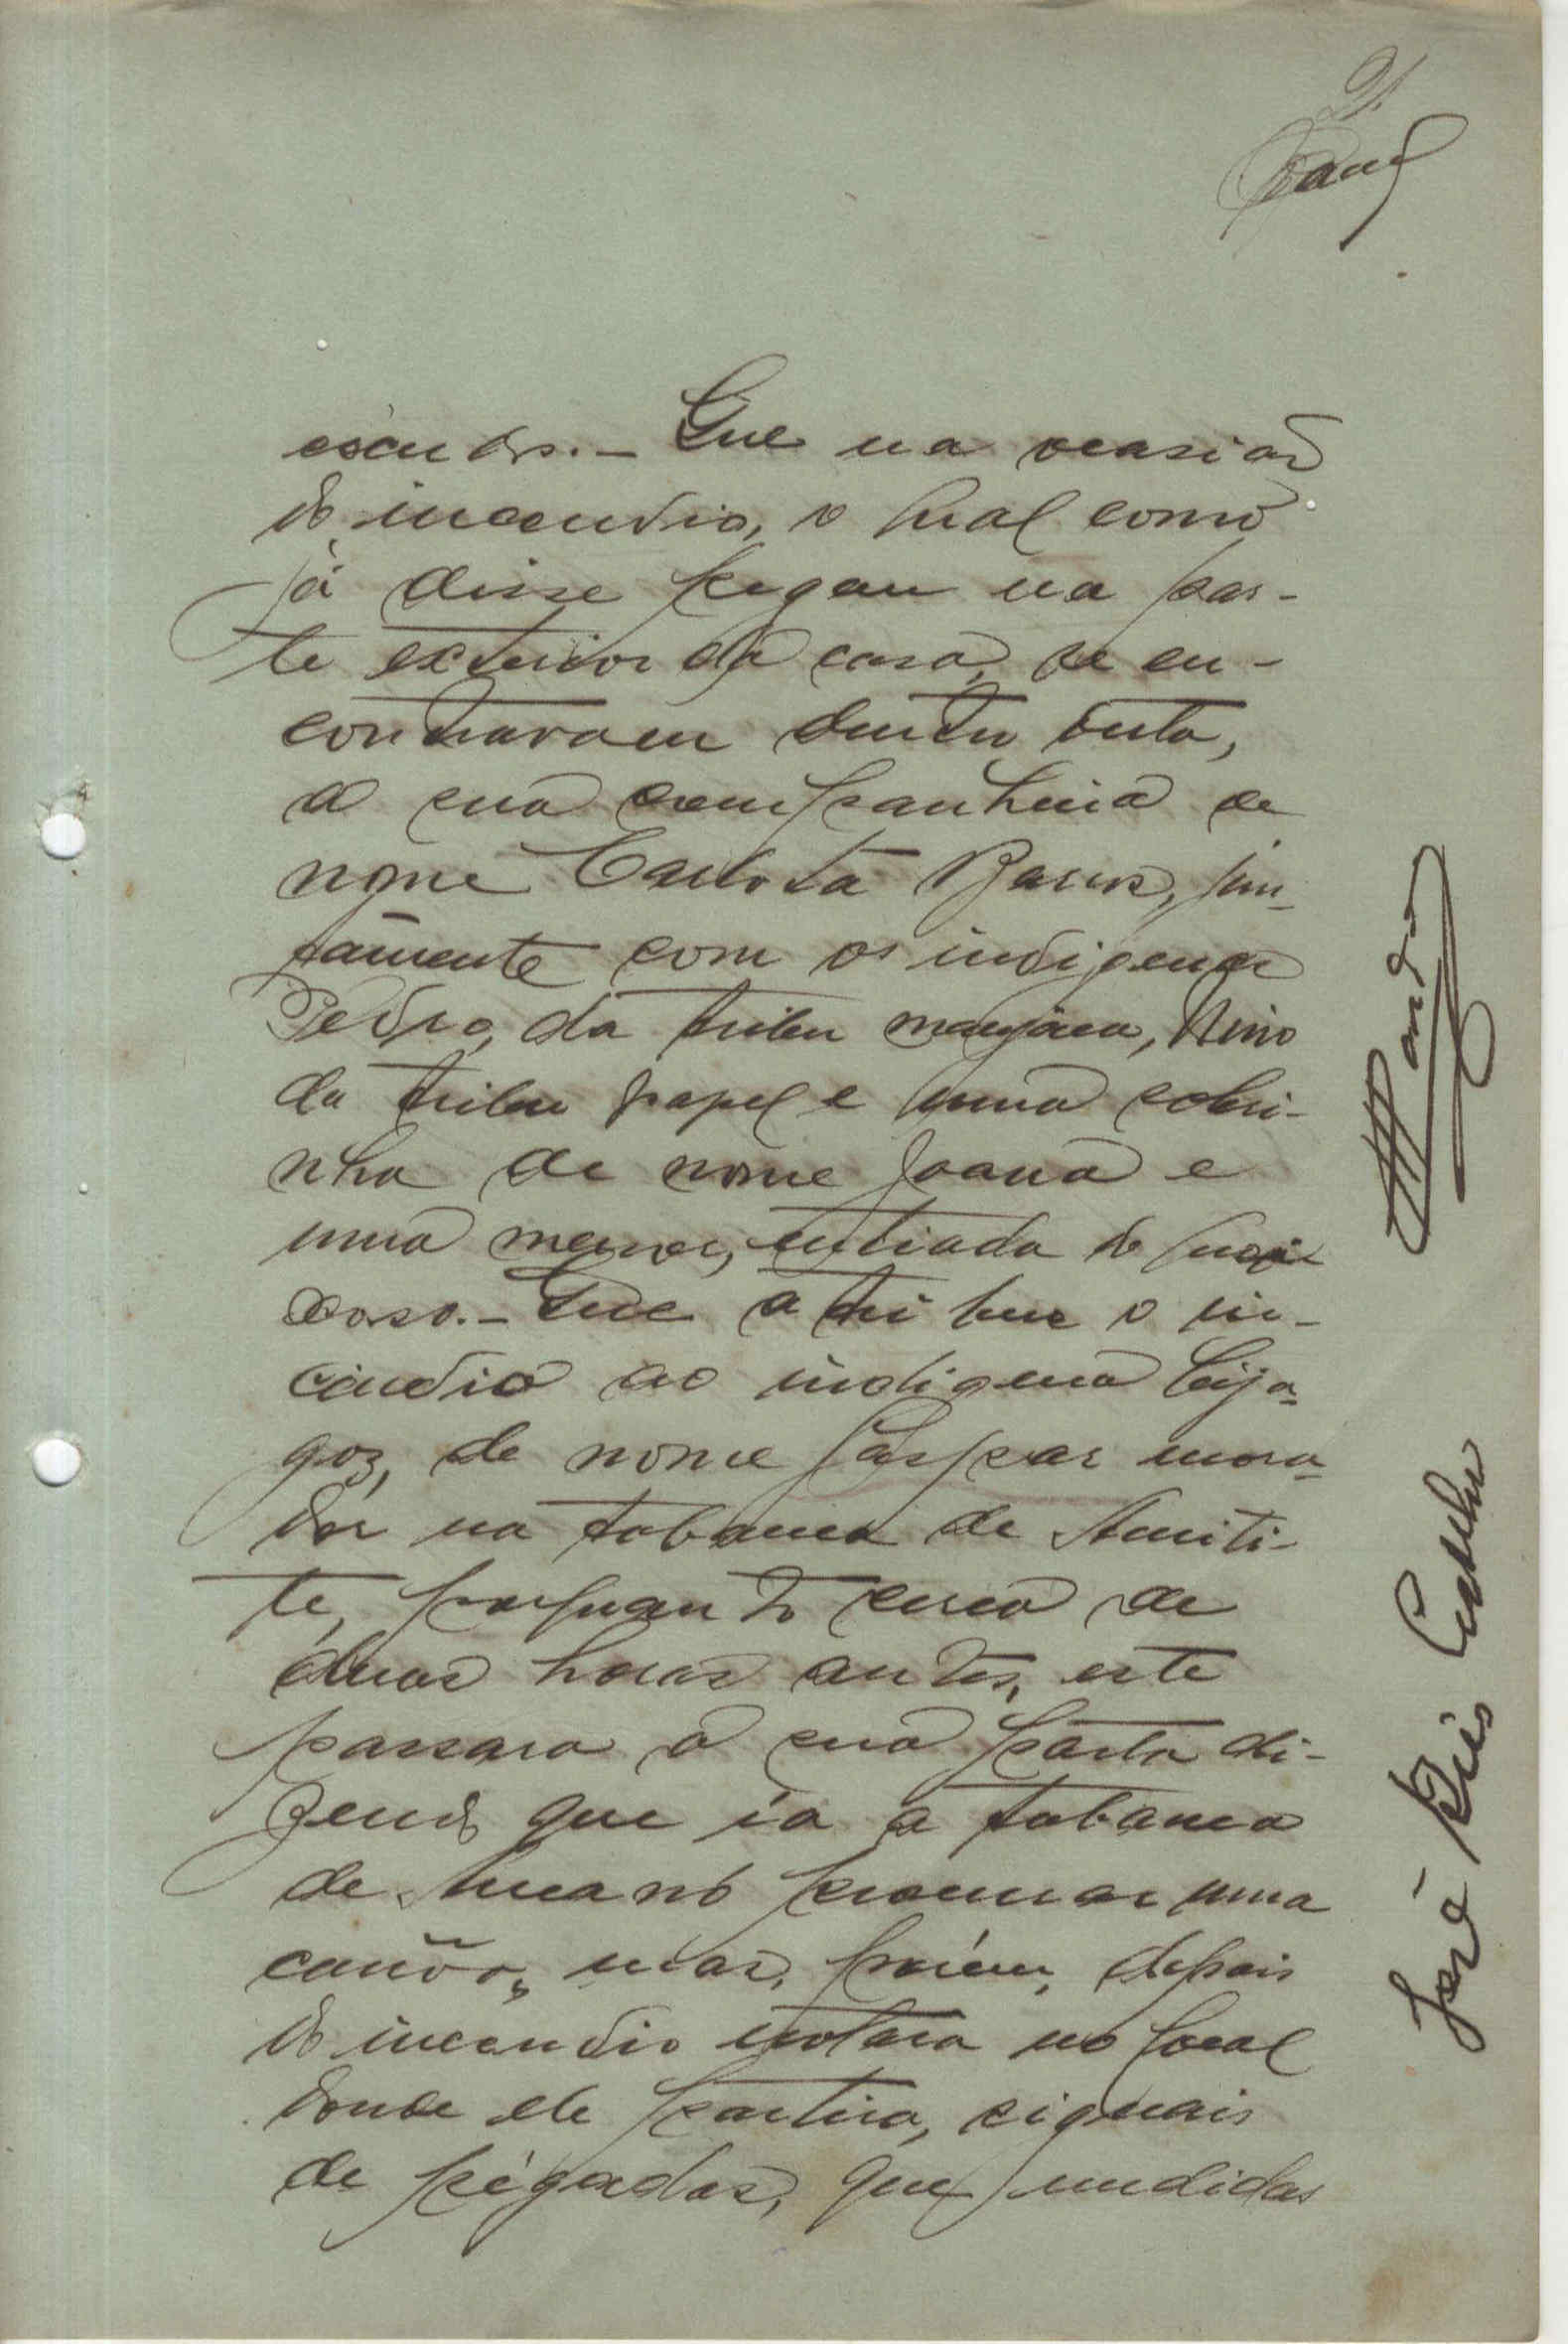 escudos.- Que na ocasião
do incendio, o qual como
já disse pegou na par-
te exterior da casa, se en-
contravam dentro desta,
a sua companheira de
nome Carlota Barros, jun-
tamente com os indigenas
Pedro, da tribu manjaca, Nino
da tribu papel e uma sobri-
nha de nome Joana e
uma menor, enteada do
- Que atribue o in-
cendio ao indigena bija-
goz, de nome Gaspar mora-
dor na tabanca de
te, porquanto cerca de
duas horas antes, este
passara á sua porta di-
zendo que ia a tabanca
de procurar uma
canôa, mas, porém, depois
do incendio notara no local
donde ele partira, signais
de pégadas, que medidas
José Reis